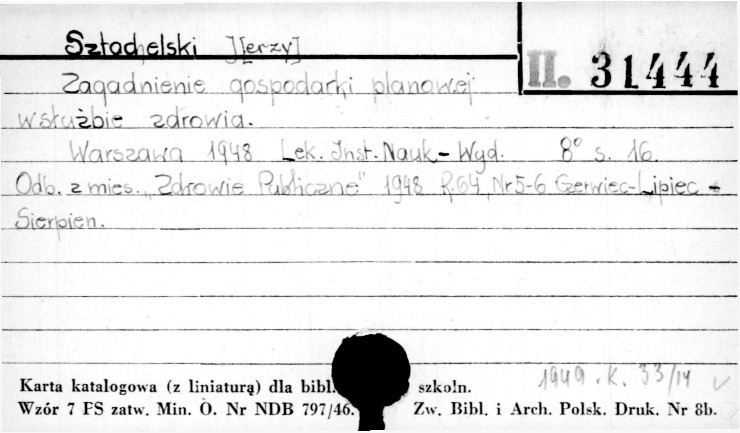 Sztachelski J[erzy]
II. 31444
Zagadnienie gospodarki planowej
w służbie zdrowia.
Warszawa 1948 Lek. Inst. Nauk-Wyd. 8° s. 16.
Odb. z mies. "Zdrowie Publiczne" 1948 R.64, Nr 5-6 Czerwiec-Lipiec -
Sierpien.
1949. K. 33/14
Karta katalogowa (z liniaturą) dla bibl. szkoln.
Wzór 7 FS zatw. Min. O. Nr NDB 797/46. Zw. Bibl. i Arch. Polsk. Druk. Nr 8b.